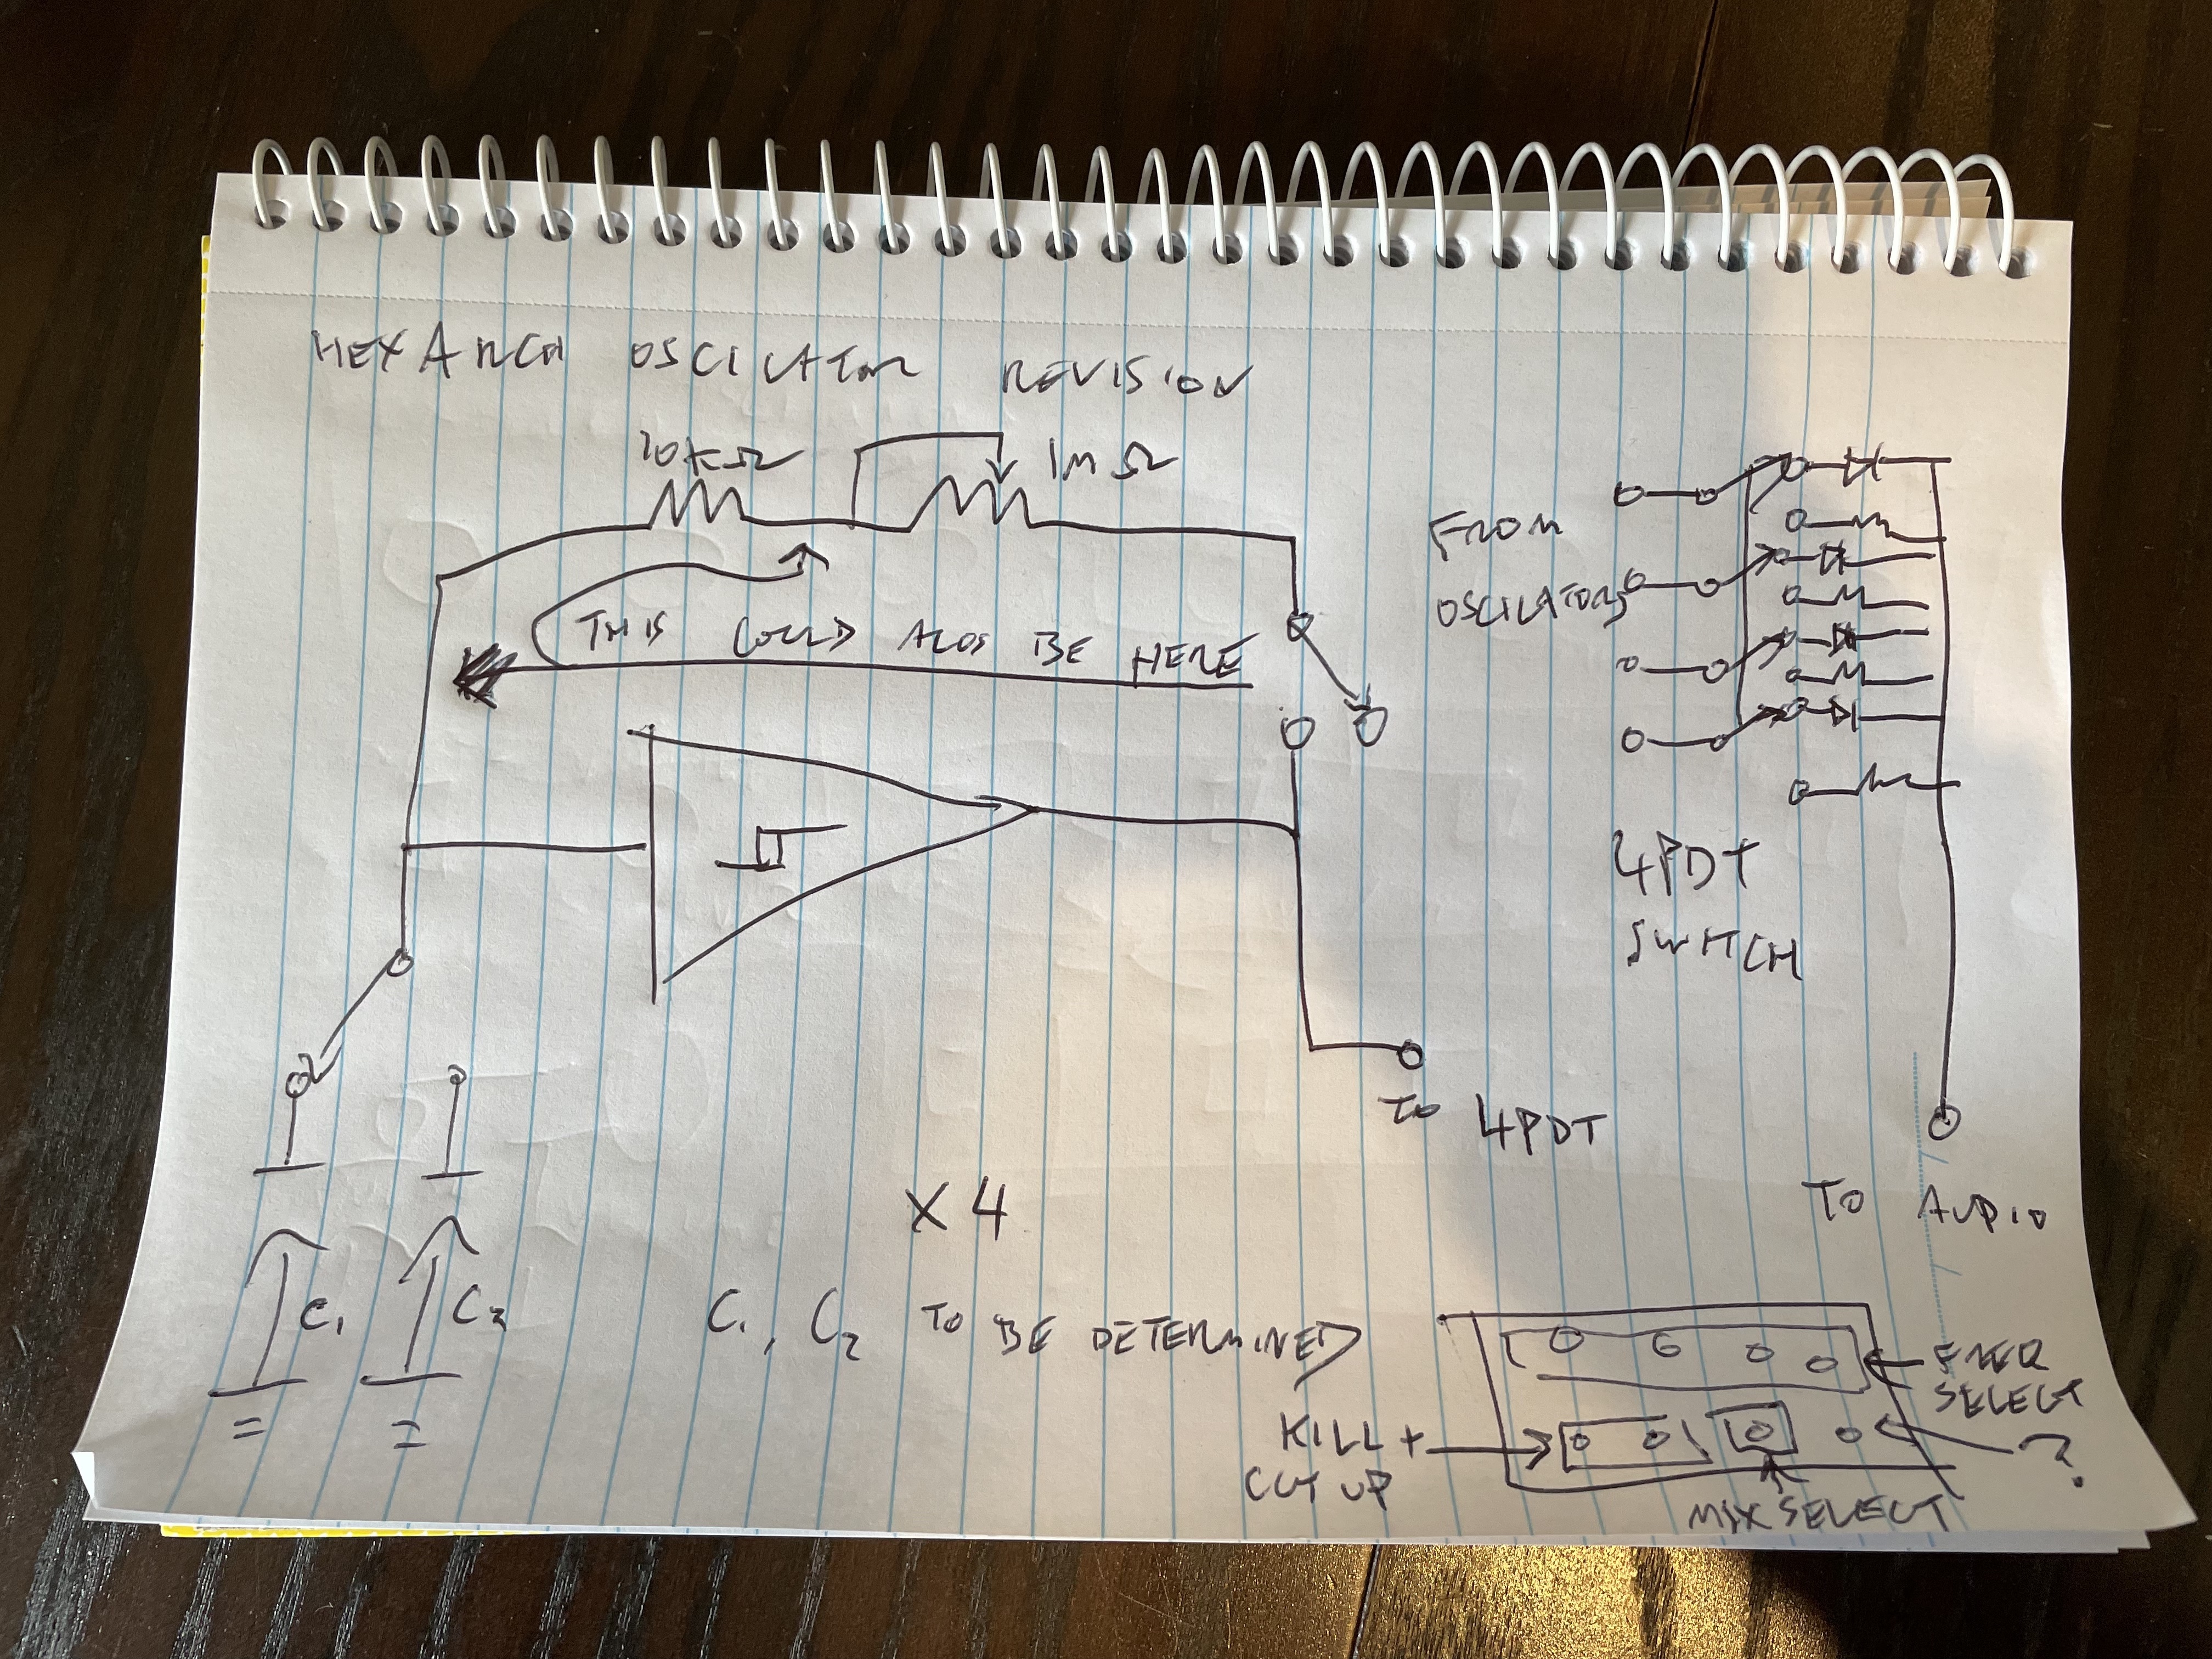 HEXARCH OSCILATOR REVISION
10KΩ
1MΩ
THIS COULD ALOS BE HERE
FROM
OSCILATORS
4PDT
SWITCH
TO 4PDT
TO AUDIO
X 4
C1
C2
C1, C2 TO BE DETERMINED
FREQ
SELECT
KILL +
CUT UP
?
MIX SELECT